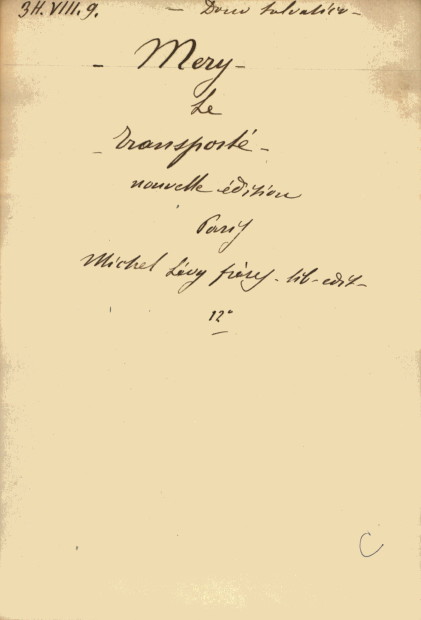 34.VIII.9. - Dono Salvatico -
- Mery -
Le
- Transporté -
nouvelle édition
Paris
Michel Lévy frères - lib-edit -
12°
C